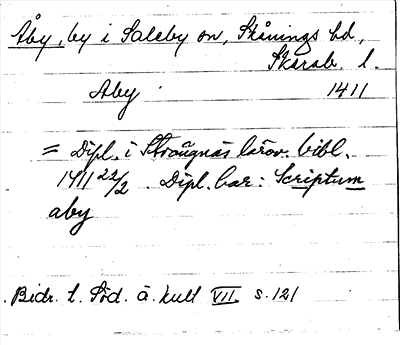 Åby, by i Saleby sn, Skånings hd,
Skarab. l.
Aby 1411
= Dipl. i Strängnäs lärov. bibl.
1411 22/2. Dipl. har: Scriptum
aby
Bidr. t. Söd. ä. kult VII s. 121